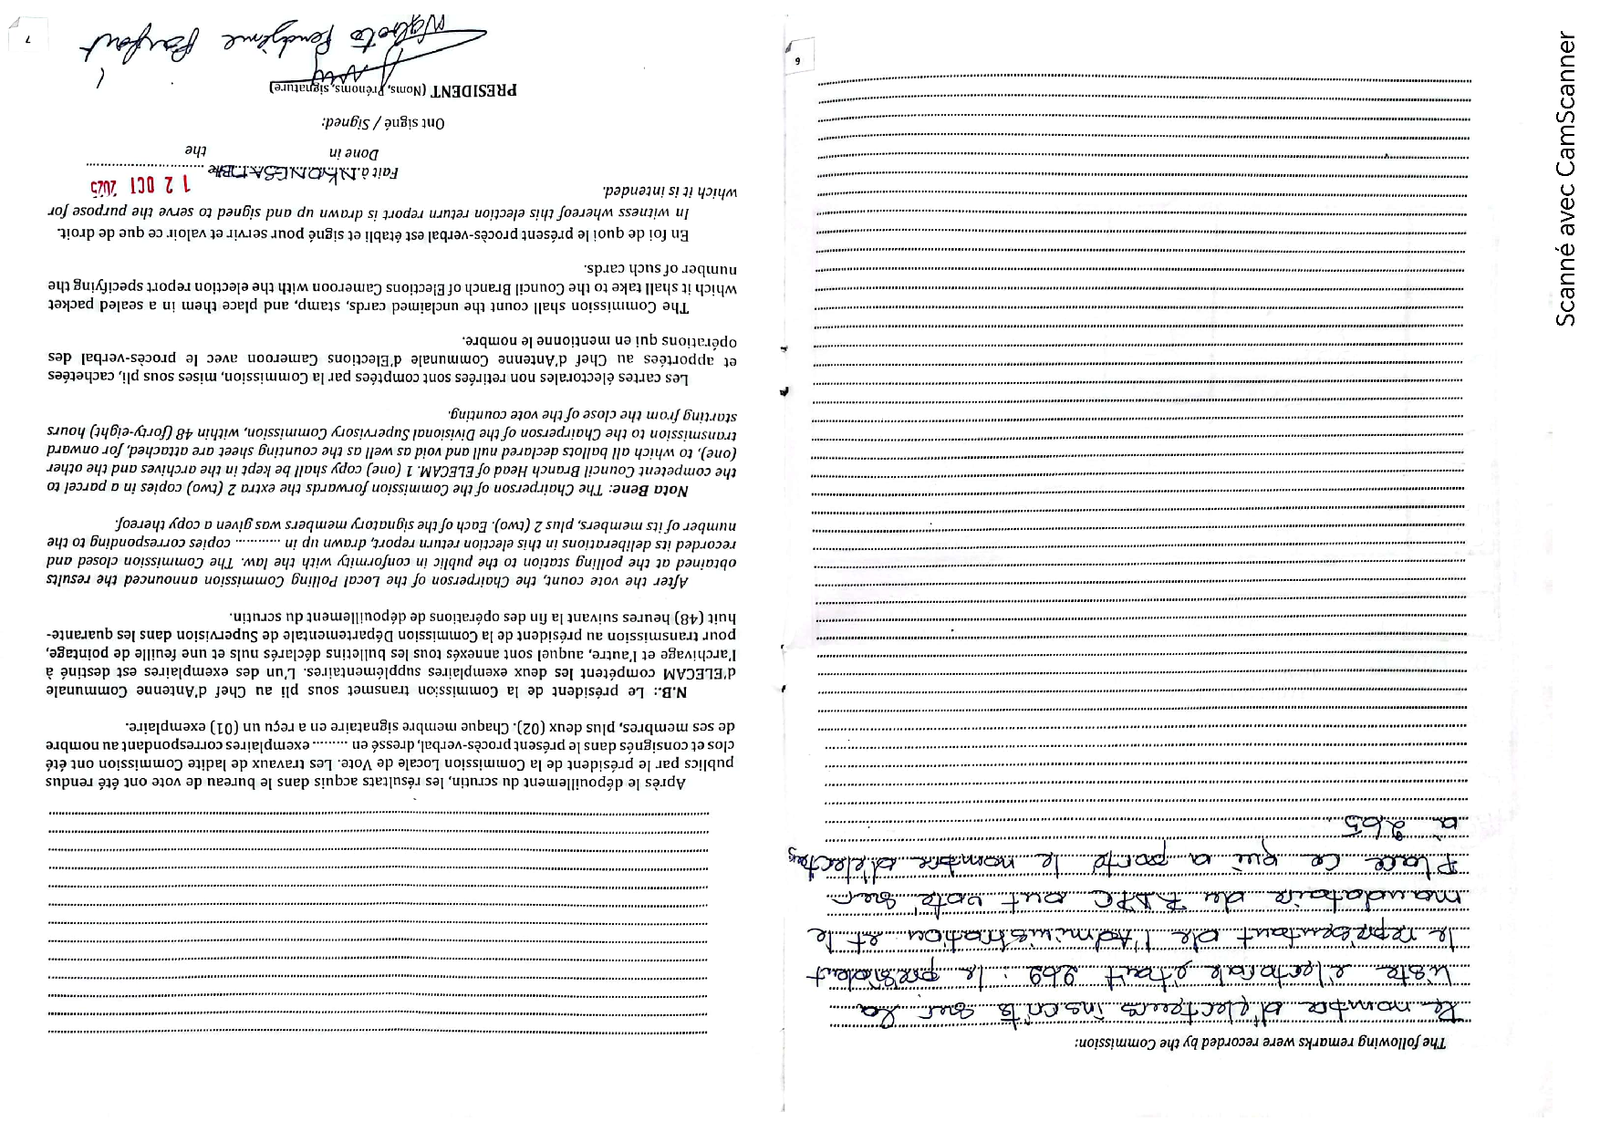 The following remarks were recorded by the Commission:
Le nombre d'électeurs inscrits sur la
liste électorale était 262 : le président
le représentant de l'Administration et le
mandataire du RDPC ont voté sur
place ce qui a porté le nombre d'électeurs
à 265
6
Après le dépouillement du scrutin, les résultats acquis dans le bureau de vote ont été rendus
publics par le président de la Commission Locale de Vote. Les travaux de ladite Commission ont été
clos et consignés dans le présent procès-verbal, dressé en ......... exemplaires correspondant au nombre
de ses membres, plus deux (02). Chaque membre signataire en a reçu un (01) exemplaire.
N.B.: Le président de la Commission transmet sous pli au Chef d'Antenne Communale
d'ELECAM compétent les deux exemplaires supplémentaires. L'un des exemplaires est destiné à
l'archivage et l'autre, auquel sont annexés tous les bulletins déclarés nuls et une feuille de pointage,
pour transmission au président de la Commission Départementale de Supervision dans les quarante-
huit (48) heures suivant la fin des opérations de dépouillement du scrutin.
After the vote count, the Chairperson of the Local Polling Commission announced the results
obtained at the polling station to the public in conformity with the law. The Commission closed and
recorded its deliberations in this election return report, drawn up in ........... copies corresponding to the
number of its members, plus 2 (two). Each of the signatory members was given a copy thereof.
Nota Bene: The Chairperson of the Commission forwards the extra 2 (two) copies in a parcel to
the competent Council Branch Head of ELECAM. 1 (one) copy shall be kept in the archives and the other
(one), to which all ballots declared null and void as well as the counting sheet are attached, for onward
transmission to the Chairperson of the Divisional Supervisory Commission, within 48 (forty-eight) hours
starting from the close of the vote counting.
Les cartes électorales non retirées sont comptées par la Commission, mises sous pli, cachetées
et apportées au Chef d'Antenne Communale d'Elections Cameroon avec le procès-verbal des
opérations qui en mentionne le nombre.
The Commission shall count the unclaimed cards, stamp, and place them in a sealed packet
which it shall take to the Council Branch of Elections Cameroon with the election report specifying the
number of such cards.
En foi de quoi le présent procès-verbal est établi et signé pour servir et valoir ce que de droit.
In witness whereof this election return report is drawn up and signed to serve the purpose for
which it is intended.
Fait à 12 OCT 2025
Done in the
Ont signé / Signed:
PRESIDENT (Noms, Prénoms, signature)
Parfait
7
Scanné avec CamScanner